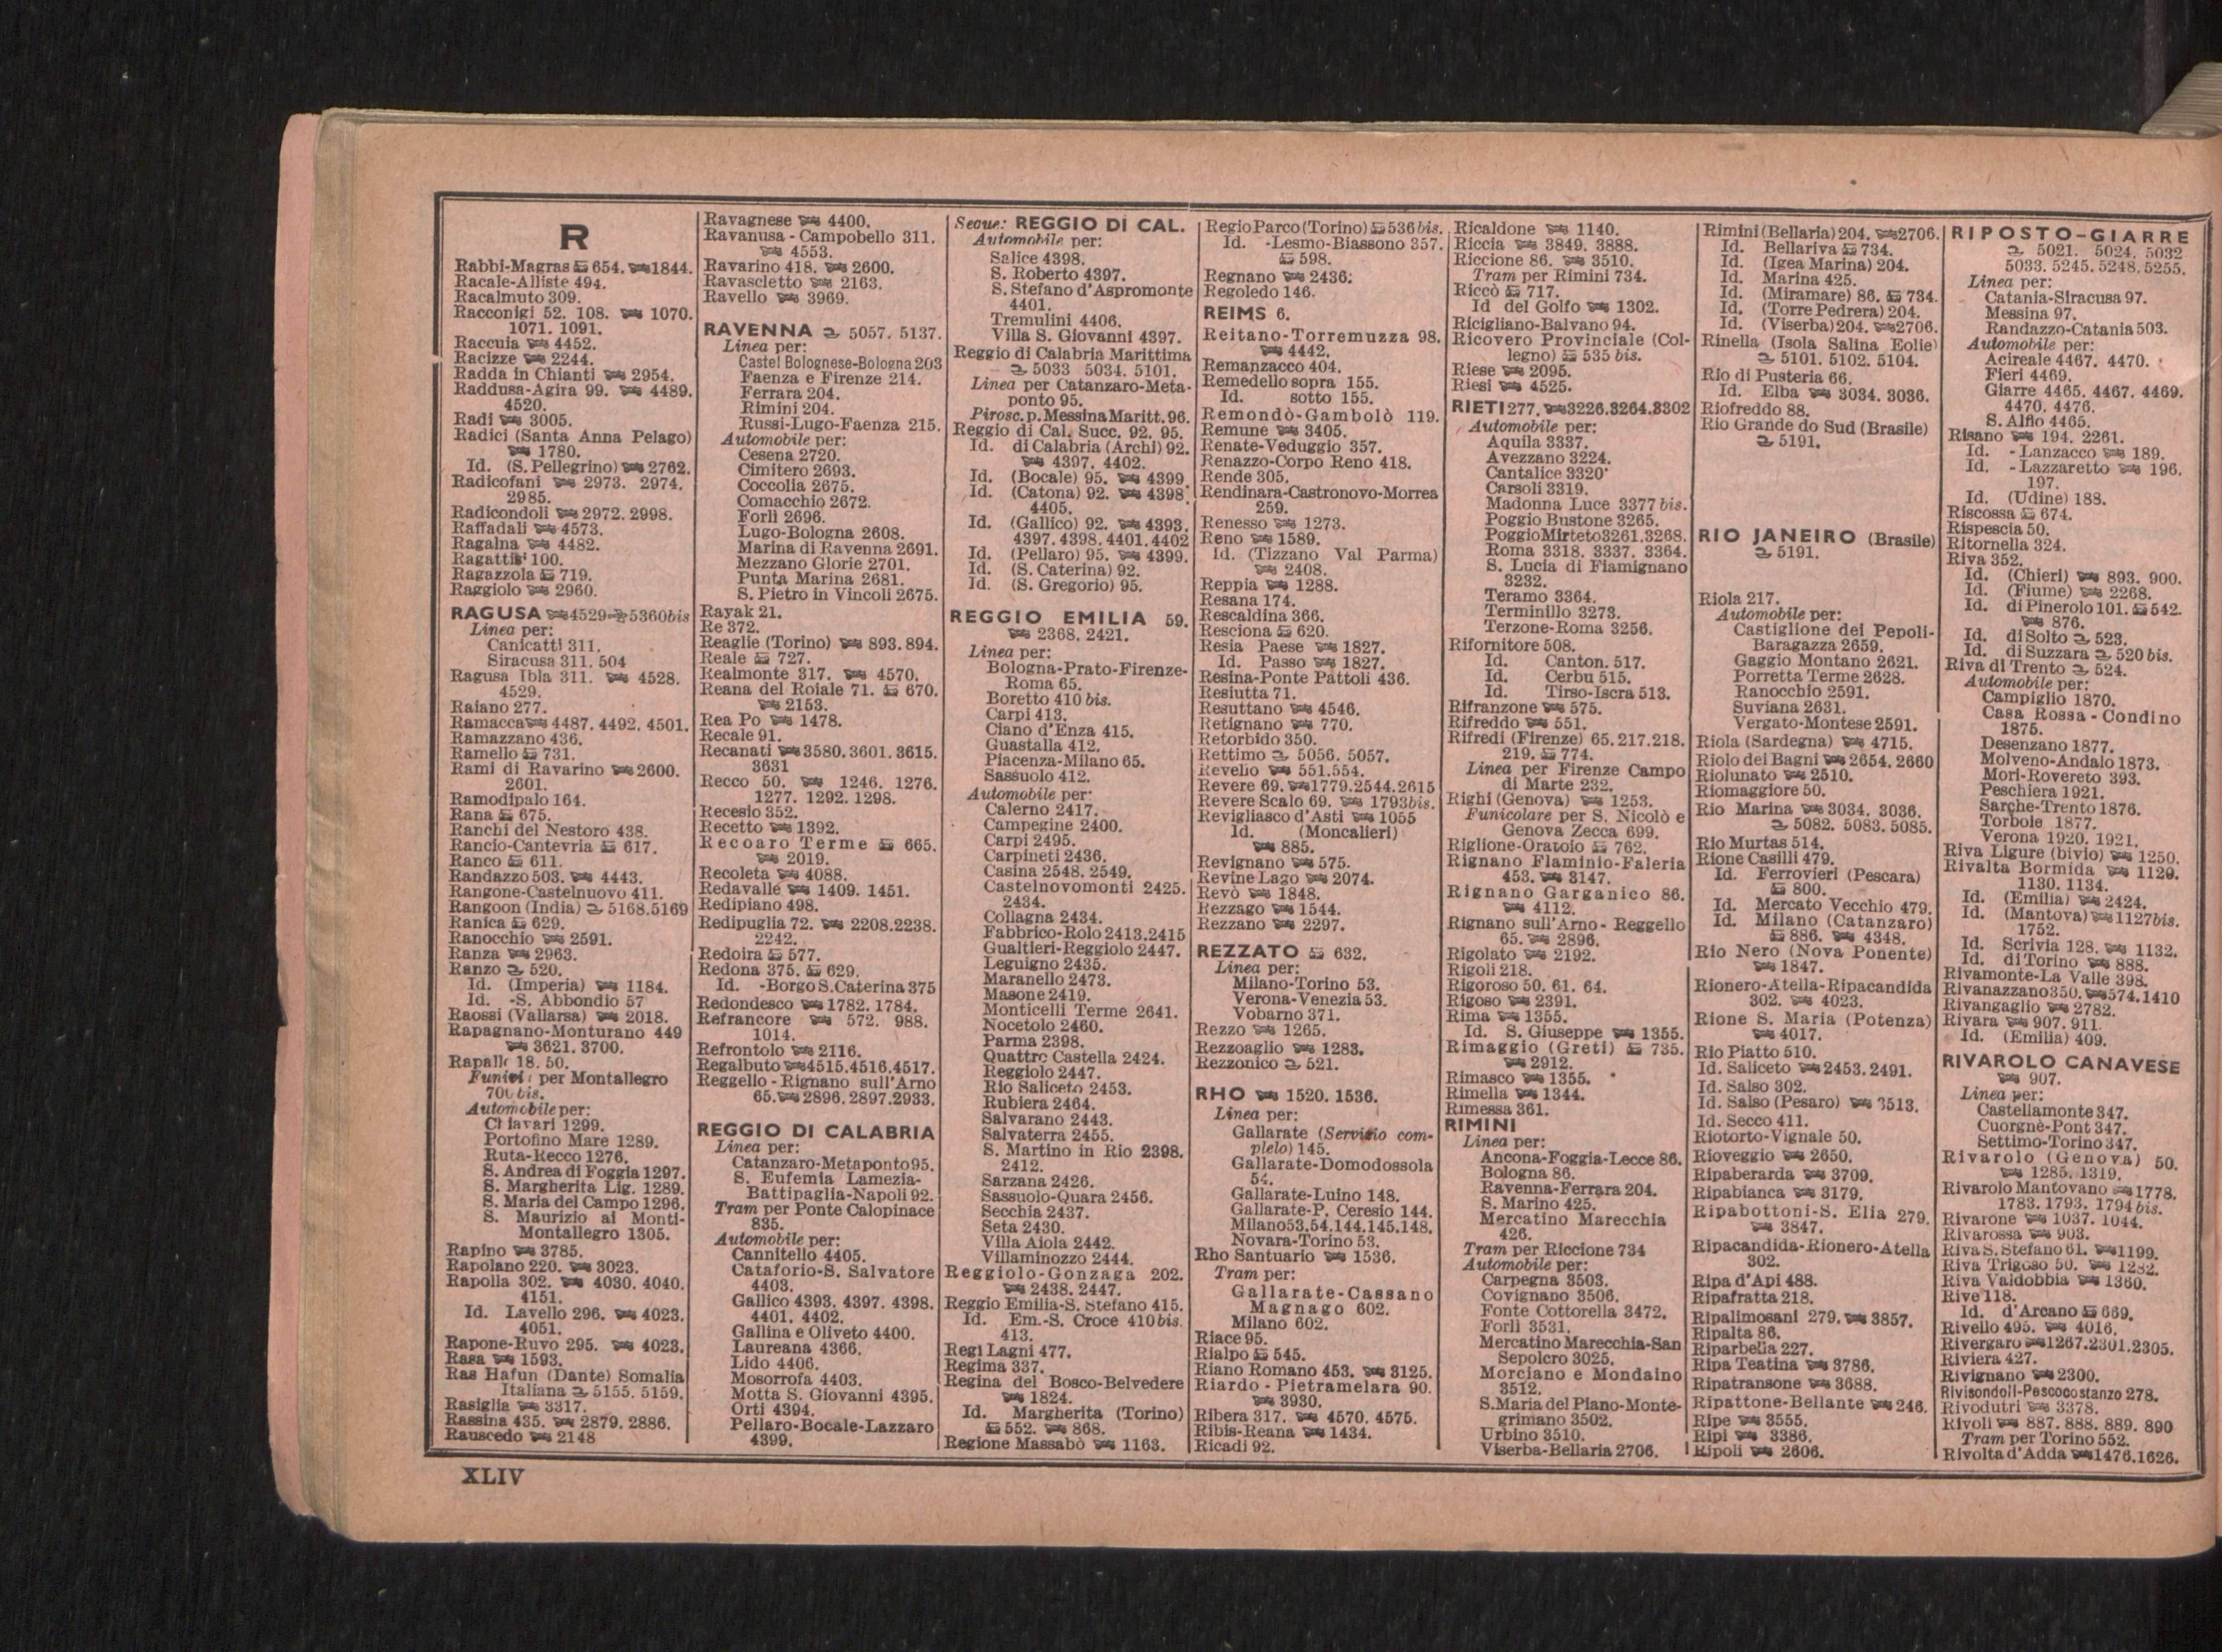 R
Rabbi-Magras 654. 1844.
Racale-Alliste 494.
Racalmuto 309.
Racconigi 52. 108. 1070.
1071. 1091.
Raccuia 4452.
Racizze 2244.
Radda in Chianti 2954.
Raddusa-Agira 99. 4489.
4520.
Radi 3005.
Radici (Santa Anna Pelago)
1780.
Id. (S. Pellegrino) 2762.
Radicofani 2973. 2974.
2985.
Radicondoli 2972. 2998.
Raffadali 4573.
Ragalna 4482.
Ragattisi 100.
Ragazzola 719.
Raggiolo 2960.
RAGUSA 4529 5360 bis
Linea per:
Canicatti 311.
Siracusa 311. 504
Ragusa Ibla 311. 4528.
4529.
Raiano 277.
Ramacca 4487. 4492. 4501.
Ramazzano 436.
Ramello 731.
Rami di Ravarino 2600.
2601.
Ramodipalo 164.
Rana 675.
Ranchi del Nestoro 438.
Rancio-Cantevria 617.
Ranco 611.
Randazzo 503. 4443.
Rangone-Castelnuovo 411.
Rangoon (India) 5168.5169
Ranica 629.
Ranocchio 2591.
Ranza 2963.
Ranzo 520.
Id. (Imperia) 1184.
Id. -S. Abbondio 57
Raossi (Vallarsa) 2018.
Rapagnano-Monturano 449
3621. 3700.
Rapallo 18. 50.
Funivi: per Montallegro
700 bis.
Automobile per:
Chiavari 1299.
Portofino Mare 1289.
Ruta-Recco 1276.
S. Andrea di Foggia 1297.
S. Margherita Lig. 1289.
S. Maria del Campo 1296.
S. Maurizio ai Monti-
Montallegro 1305.
Rapino 3785.
Rapolano 220. 3023.
Rapolla 302. 4030. 4040.
4151.
Id. Lavello 296. 4023.
4051.
Rapone-Ruvo 295. 4023.
Rasa 1593.
Ras Hafun (Dante) Somalia
Italiana 5155. 5159.
Rasiglia 3317.
Rassina 435. 2879. 2886.
Rauscedo 2148
Ravagnese 4400.
Ravanusa - Campobello 311.
4553.
Ravarino 418. 2600.
Ravascletto 2163.
Ravello 3969.
RAVENNA 5057. 5137.
Linea per:
Castel Bolognese-Bologna 203
Faenza e Firenze 214.
Ferrara 204.
Rimini 204.
Russi-Lugo-Faenza 215.
Automobile per:
Cesena 2720.
Cimitero 2693.
Coccolia 2675.
Comacchio 2672.
Forlì 2696.
Lugo-Bologna 2608.
Marina di Ravenna 2691.
Mezzano Glorie 2701.
Punta Marina 2681.
S. Pietro in Vincoli 2675.
Rayak 21.
Re 372.
Reaglie (Torino) 893. 894.
Reale 727.
Realmonte 317. 4570.
Reana del Roiale 71. 670.
2153.
Rea Po 1478.
Recale 91.
Recanati 3580. 3601. 3615.
3631
Recco 50. 1246. 1276.
1277. 1292. 1298.
Recesio 352.
Recetto 1392.
Recoaro Terme 665.
2019.
Recoleta 4088.
Redavalle 1409. 1451.
Redipiano 498.
Redipuglia 72. 2208.2238.
2242.
Redoira 577.
Redona 375. 629.
Id. -Borgo S.Caterina 375
Redondesco 1782. 1784.
Refrancore 572. 988.
1014.
Refrontolo 2116.
Regalbuto 4515.4516.4517.
Reggello - Rignano sull'Arno
65. 2896. 2897.2933.
REGGIO DI CALABRIA
Linea per:
Catanzaro-Metaponto 95.
S. Eufemia Lamezia-
Battipaglia-Napoli 92.
Tram per Ponte Calopinace
835.
Automobile per:
Cannitello 4405.
Cataforio-S. Salvatore
4403.
Gallico 4393. 4397. 4398.
4401. 4402.
Gallina e Oliveto 4400.
Laureana 4366.
Lido 4406.
Mosorrofa 4403.
Motta S. Giovanni 4395.
Orti 4394.
Pellaro-Bocale-Lazzaro
4399.
Segue: REGGIO DI CAL.
Automobile per:
Salice 4398.
S. Roberto 4397.
S. Stefano d'Aspromonte
4401.
Tremulini 4406.
Villa S. Giovanni 4397.
Reggio di Calabria Marittima
5033 5034. 5101.
Linea per Catanzaro-Meta-
ponto 95.
Pirosc. p. Messina Maritt. 96.
Reggio di Cal. Succ. 92. 95.
Id. di Calabria (Archi) 92.
4397. 4402.
Id. (Bocale) 95. 4399
Id. (Catona) 92. 4398
4405.
Id. (Gallico) 92. 4393.
4397. 4398. 4401. 4402
Id. (Pellaro) 95. 4399.
Id. (S. Caterina) 92.
Id. (S. Gregorio) 95.
REGGIO EMILIA 59.
2368. 2421.
Linea per:
Bologna-Prato-Firenze-
Roma 65.
Boretto 410 bis.
Carpi 413.
Ciano d'Enza 415.
Guastalla 412.
Piacenza-Milano 65.
Sassuolo 412.
Automobile per:
Calerno 2417.
Campegine 2400.
Carpi 2495.
Carpineti 2436.
Casina 2548. 2549.
Castelnovomonti 2425.
2434.
Collagna 2434.
Fabbrico-Rolo 2413.2415
Gualtieri-Reggiolo 2447.
Leguigno 2435.
Maranello 2473.
Masone 2419.
Monticelli Terme 2641.
Nocetolo 2460.
Parma 2398.
Quattro Castella 2424.
Reggiolo 2447.
Rio Saliceto 2453.
Rubiera 2464.
Salvarano 2443.
Salvaterra 2455.
S. Martino in Rio 2398.
2412.
Sarzana 2426.
Sassuolo-Quara 2456.
Secchia 2437.
Seta 2430.
Villa Aiola 2442.
Villaminozzo 2444.
Reggiolo-Gonzaga 202.
2438. 2447.
Reggio Emilia-S. Stefano 415.
Id. Em.-S. Croce 410 bis.
413.
Regi Lagni 477.
Regima 337.
Regina del Bosco-Belvedere
1824.
Id. Margherita (Torino)
552. 868.
Regione Massabò 1163.
Regio Parco (Torino) 536 bis.
Id. -Lesmo-Biassono 357.
598.
Regnano 2436.
Regoledo 146.
REIMS 6.
Reitano-Torremuzza 98.
4442.
Remanzacco 404.
Remedello sopra 155.
Id. sotto 155.
Remondò-Gambolò 119.
Remune 3405.
Renate-Veduggio 357.
Renazzo-Corpo Reno 418.
Rende 305.
Rendinara-Castronovo-Morrea
259.
Renesso 1273.
Reno 1589.
Id. (Tizzano Val Parma)
2408.
Reppia 1288.
Resana 174.
Rescaldina 366.
Resciona 620.
Resia Paese 1827.
Id. Passo 1827.
Resina-Ponte Pattoli 436.
Resiutta 71.
Resuttano 4546.
Retignano 770.
Retorbido 350.
Rettimo 5056. 5057.
Revelio 551.554.
Revere 69. 1779.2544.2615
Revere Scalo 69. 1793 bis.
Revigliasco d'Asti 1055
Id. (Moncalieri)
885.
Revignano 575.
Revine Lago 2074.
Revò 1848.
Rezzago 1544.
Rezzano 2297.
REZZATO 632.
Linea per:
Milano-Torino 53.
Verona-Venezia 53.
Vobarno 371.
Rezzo 1265.
Rezzoaglio 1283.
Rezzonico 521.
RHO 1520. 1536.
Linea per:
Gallarate (Servizio com-
pleto) 145.
Gallarate-Domodossola
54.
Gallarate-Luino 148.
Gallarate-P. Ceresio 144.
Milano 53.54.144.145.148.
Novara-Torino 53.
Rho Santuario 1536.
Tram per:
Gallarate-Cassano
Magnago 602.
Milano 602.
Riace 95.
Rialpo 545.
Riano Romano 453. 3125.
Riardo - Pietramelara 90.
3930.
Ribera 317. 4570. 4575.
Ribis-Reana 1434.
Ricadi 92.
Ricaldone 1140.
Riccia 3849. 3888.
Riccione 86. 3510.
Tram per Rimini 734.
Riccò 717.
Id del Golfo 1302.
Ricigliano-Balvano 94.
Ricovero Provinciale (Col-
legno) 535 bis.
Riese 2095.
Riesi 4525.
RIETI 277. 3226.3264.3302
Automobile per:
Aquila 3337.
Avezzano 3224.
Cantalice 3320
Carsoli 3319.
Madonna Luce 3377 bis.
Poggio Bustone 3265.
Poggio Mirteto 3261.3268.
Roma 3318. 3337. 3364.
S. Lucia di Fiamignano
3232.
Teramo 3364.
Terminillo 3273.
Terzone-Roma 3256.
Rifornitore 508.
Id. Canton. 517.
Id. Cerbu 515.
Id. Tirso-Iscra 513.
Rifranzone 575.
Rifreddo 551.
Rifredi (Firenze) 65.217.218.
219. 774.
Linea per Firenze Campo
di Marte 232.
Righi (Genova) 1253.
Funicolare per S. Nicolò e
Genova Zecca 699.
Riglione-Oratoio 762.
Rignano Flaminio-Faleria
453. 3147.
Rignano Garganico 86.
4112.
Rignano sull'Arno - Reggello
65. 2896.
Rigolato 2192.
Rigoli 218.
Rigoroso 50. 61. 64.
Rigoso 2391.
Rima 1355.
Id. S. Giuseppe 1355.
Rimaggio (Greti) 735.
2912.
Rimasco 1355.
Rimella 1344.
Rimessa 361.
RIMINI
Linea per:
Ancona-Foggia-Lecce 86.
Bologna 86.
Ravenna-Ferrara 204.
S. Marino 425.
Mercatino Marecchia
426.
Tram per Riccione 734
Automobile per:
Carpegna 3503.
Covignano 3506.
Fonte Cottorella 3472.
Forlì 3531.
Mercatino Marecchia-San
Sepolcro 3025.
Morciano e Mondaino
3512.
S.Maria del Piano-Monte-
grimano 3502.
Urbino 3510.
Viserba-Bellaria 2706.
Rimini (Bellaria) 204. 2706.
Id. Bellariva 734.
Id. (Igea Marina) 204.
Id. Marina 425.
Id. (Miramare) 86. 734.
Id. (Torre Pedrera) 204.
Id. (Viserba) 204. 2706.
Rinella (Isola Salina Eolie)
5101. 5102. 5104.
Rio di Pusteria 66.
Id. Elba 3034. 3036.
Riofreddo 88.
Rio Grande do Sud (Brasile)
5191.
RIO JANEIRO (Brasile)
5191.
Riola 217.
Automobile per:
Castiglione dei Pepoli-
Baragazza 2659.
Gaggio Montano 2621.
Porretta Terme 2628.
Ranocchio 2591.
Suviana 2631.
Vergato-Montese 2591.
Riola (Sardegna) 4715.
Riolo dei Bagni 2654. 2660
Riolunato 2510.
Riomaggiore 50.
Rio Marina 3034. 3036.
5082. 5083. 5085.
Rio Murtas 514.
Rione Casilli 479.
Id. Ferrovieri (Pescara)
800.
Id. Mercato Vecchio 479.
Id. Milano (Catanzaro)
886. 4348.
Rio Nero (Nova Ponente)
1847.
Rionero-Atella-Ripacandida
302. 4023.
Rione S. Maria (Potenza)
4017.
Rio Piatto 510.
Id. Saliceto 2453. 2491.
Id. Salso 302.
Id. Salso (Pesaro) 3513.
Id. Secco 411.
Riotorto-Vignale 50.
Rioveggio 2650.
Ripaberarda 3709.
Ripabianca 3179.
Ripabottoni-S. Elia 279.
3847.
Ripacandida-Rionero-Atella
302.
Ripa d'Api 488.
Ripafratta 218.
Ripalimosani 279. 3857.
Ripalta 86.
Riparbella 227.
Ripa Teatina 3786.
Ripatransone 3688.
Ripattone-Bellante 246.
Ripe 3555.
Ripi 3386.
Ripoli 2606.
RIPOSTO-GIARRE
5021. 5024. 5032
5033. 5245. 5248. 5255.
Linea per:
Catania-Siracusa 97.
Messina 97.
Randazzo-Catania 503.
Automobile per:
Acireale 4467. 4470.
Fieri 4469.
Giarre 4465. 4467. 4469.
4470. 4476.
S. Alfio 4465.
Risano 194. 2261.
Id. - Lanzacco 189.
Id. - Lazzaretto 196.
197.
Id. (Udine) 188.
Riscossa 674.
Rispescia 50.
Ritornella 324.
Riva 352.
Id. (Chieri) 893. 900.
Id. (Fiume) 2268.
Id. di Pinerolo 101. 542.
876.
Id. di Solto 523.
Id. di Suzzara 520 bis.
Riva di Trento 524.
Automobile per:
Campiglio 1870.
Casa Rossa - Condino
1875.
Desenzano 1877.
Molveno-Andalo 1873.
Mori-Rovereto 393.
Peschiera 1921.
Sarche-Trento 1876.
Torbole 1877.
Verona 1920. 1921.
Riva Ligure (bivio) 1250.
Rivalta Bormida 1129.
1130. 1134.
Id. (Emilia) 2424.
Id. (Mantova) 1127 bis.
1752.
Id. Scrivia 128. 1132.
Id. di Torino 888.
Rivamonte-La Valle 398.
Rivanazzano 350. 574.1410
Rivangaglio 2782.
Rivara 907. 911
Id. (Emilia) 409.
RIVAROLO CANAVESE
907.
Linea per:
Castellamonte 347.
Cuorgnè-Pont 347.
Settimo-Torino 347.
Rivarolo (Genova) 50.
1285. 1319.
Rivarolo Mantovano 1778.
1783. 1793. 1794 bis.
Rivarone 1037. 1044.
Rivarossa 903.
Riva S. Stefano 61. 1199.
Riva Trigoso 50. 1282.
Riva Valdobbia 1360.
Rive 118.
Id. d'Arcano 669.
Rivello 495. 4016.
Rivergaro 1267.2301.2305.
Riviera 427.
Rivignano 2300.
Rivisondoli-Pescocostanzo 278.
Rivodutri 3378.
Rivoli 887. 888. 889. 890
Tram per Torino 552.
Rivolta d'Adda 1476.1626.
XLIV